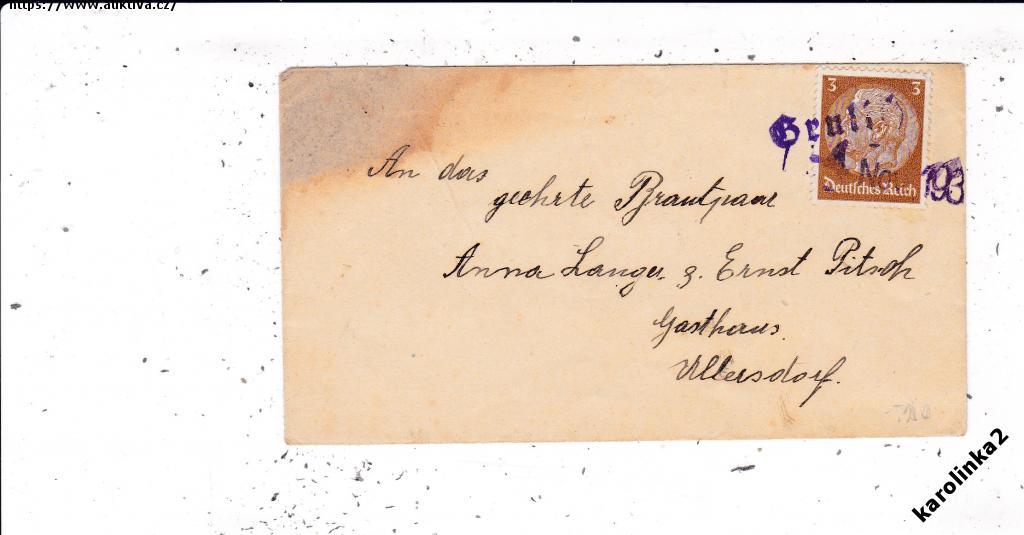 https://www.auktiva.cz/
3 3
Deutsches Reich
193
An das
geehrte Brautpaar
Anna Langer z. Ernst Pitsch
Gasthaus.
Ullersdorf.
karolinka2